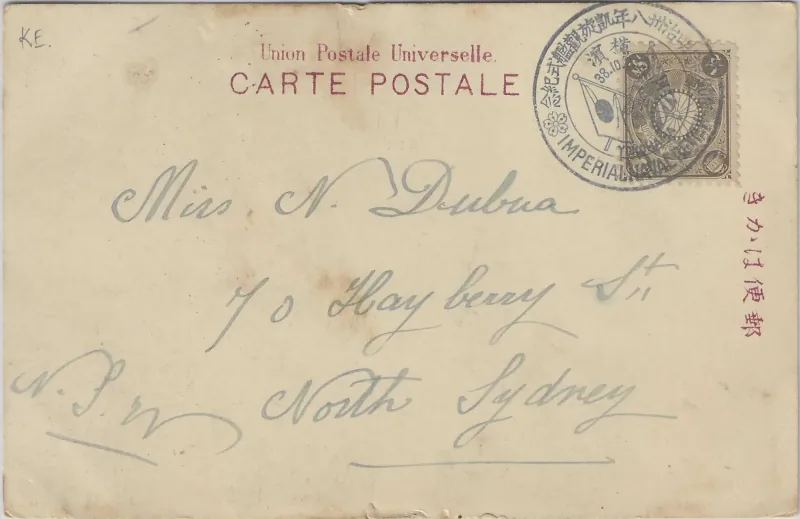 KE.
Union Postale Universelle.
CARTE POSTALE
明治卅八年凱旋觀艦式紀念
横濱
38.10.
IMPERIAL NAVAL REVIEW
Miss N. Dubua
70 Hayberry St.
North Sydney
N.S.W
きかは便郵